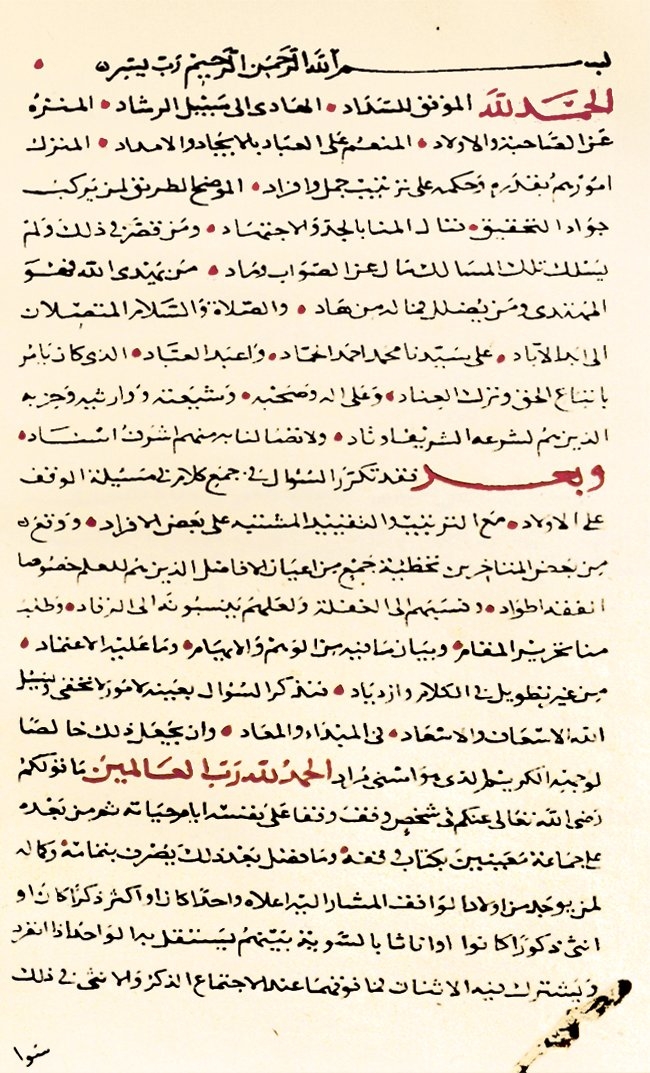 بسم الله الرحمن الرحيم رب يسر
الحمد لله الموفق للسداد الهادى الى سبيل الرشاد المنزه
عن الصاحبة والاولاد المنعم على العباد بالايجاد والامداد المنزل
امورهم بقدره وحكمه على ترتيب جمل وافراد الموضح الطريق لمن يركب
جواد التحقيق فنال المنا بالجد والاجتهاد ومن قصر فى ذلك ولم
يسلك تلك المسالك مال عن الصواب وماد من يهدى الله فهو
المهتدى ومن يضلل فما له من هاد والصلاة والسلام المتصلان
الى ابد الآباد على سيدنا محمد احمد الحماد واعبد العباد الذى كان يامر
باتباع الحق وترك العناد وعلى اله وصحبه وشيعته ووارثيه وحزبه
الذين هم لشرعه الشريف اوتاد ولاتصالنا به منهم اشرف اسناد
وبعد فقد تكرر السؤال فى جميع كلام فى مسيلة الوقف
على الاولاد مع الترتيب والتقييد المشتبه على بعض الافراد ووقع
من بعض المتاخرين تخطئة جميع من اعيان الافاضل الذين هم للعلم خصوصا
الفقه اطواد ونسبتهم الى الغفلة ولعلهم ينسبونه الى الرقاد وطلب
منا تحرير المقام وبيان ما فيه من الوهم والايهام وما عليه الاعتماد
من غير تطويل فى الكلام وازدياد فنذكر السؤال بعينه لامور لا تخفى ونسئل
الله الاسعاف والاسعاد فى المبتداء والمعاد وان يجعل ذلك خالصا
لوجهه الكريم الذى هو اسنى مراد الحمد لله رب العالمين ما قولكم
رضى الله تعالى عنكم فى شخص وقف وقفا على نفسه ايام حياته ثم من بعده
على جماعة معينين بكتاب وقفه وما فضل بعد ذلك يصرف بتمامه وكماله
لمن يوجد من اولاد الواقف المشار اليه اعلاه واحدا كان او اكثر ذكرا كان او
انثى ذكورا كانوا او اناثا بالسوية بينهم يستقل به الواحد اذا انفرد
ويشترك فيه الاثنان فما فوقهما عند الاجتماع الذكر والانثى فى ذلك
سوا